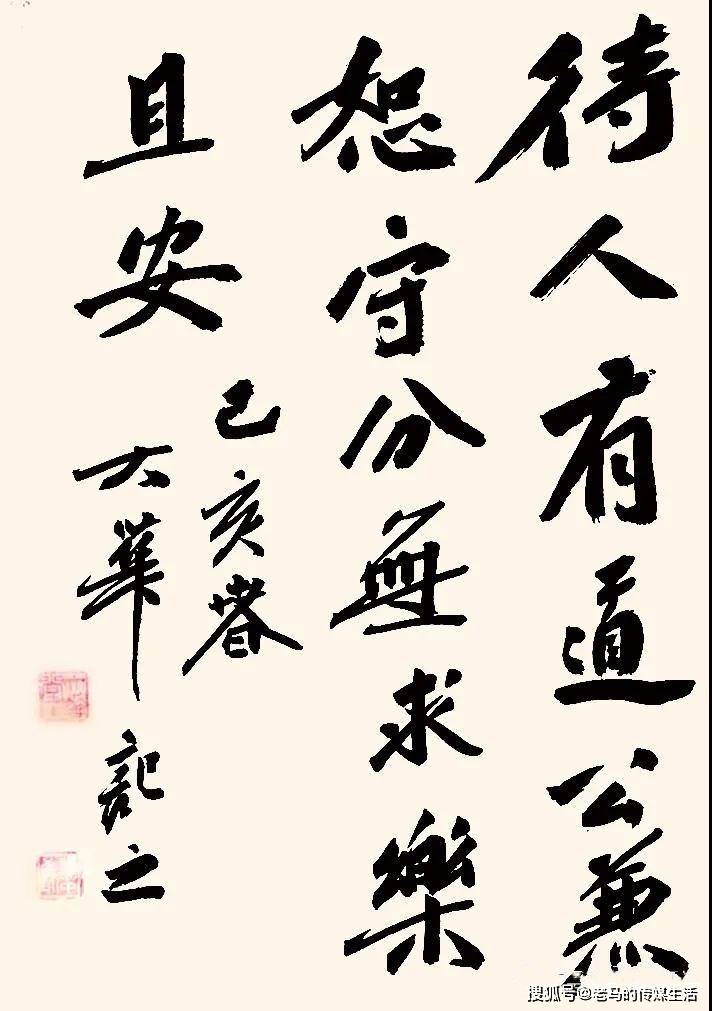 待人有道公兼
恕守分無求樂
且安
己亥春
大華記之
搜狐号@老马的传媒生活